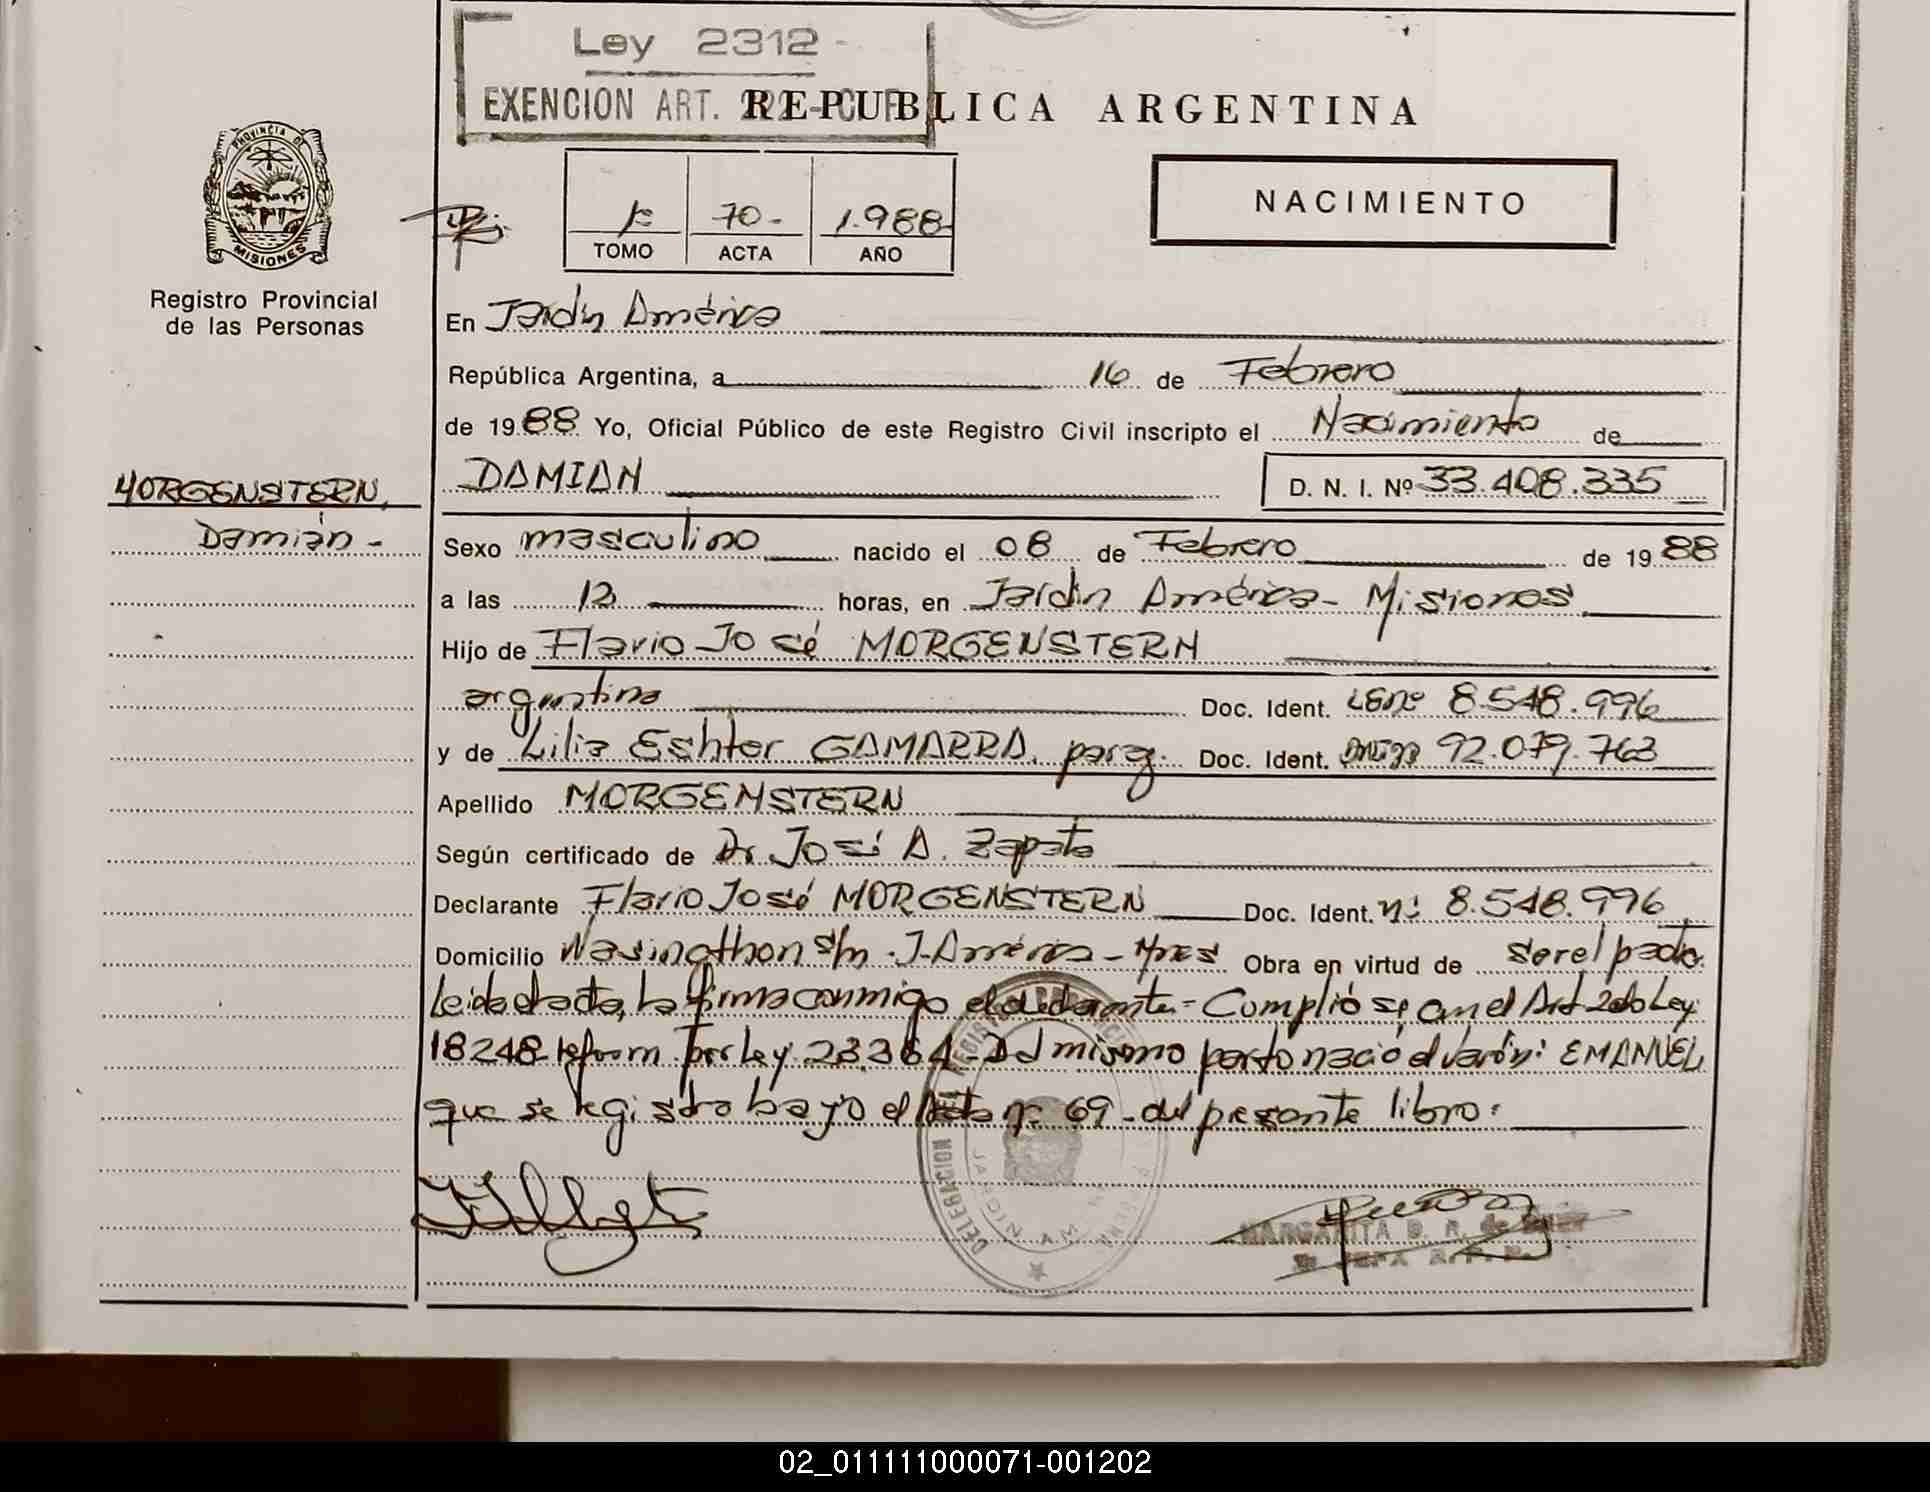 Ley 2312-
EXENCION ART.
REPUBLICA ARGENTINA
PROVINCIA DE
MISIONES
Registro Provincial
de las Personas
70- 1.988
TOMO ACTA AÑO
NACIMIENTO
En Jardín América
República Argentina, a 16 de Febrero
de 1988 Yo, Oficial Público de este Registro Civil inscripto el Nacimiento de
MORGENSTERN,
Damián -
DAMIAN D. N. I. Nº 33.408.335
Sexo masculino nacido el 08 de Febrero de 1988
a las 12 horas, en Jardín América - Misiones
Hijo de Flavio José MORGENSTERN
argentina Doc. Ident. LE nº 8.548.996
y de Lilia Eshter GAMARRA, parag. Doc. Ident. 92.079.763
Apellido MORGENSTERN
Según certificado de Dr. José A. Zapata
Declarante Flavio José MORGENSTERN Doc. Ident. nº 8.548.996
Domicilio Wasingthon s/n - J. América - Mnes Obra en virtud de ser el padre.
Leida el acta, la firma conmigo el declarante - Cumplióse con el Art 2 de Ley
18248 reform por Ley 23.364 - Del mismo parto nació el varón: EMANUEL
que se registra bajo el Acta nº 69 - del presente libro.
DELEGACION DEL REGISTRO
MARGARITA
02_011111000071-001202